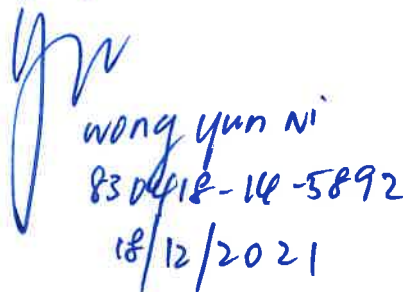 Wong Yun Ni
830418-14-5892
18/12/2021